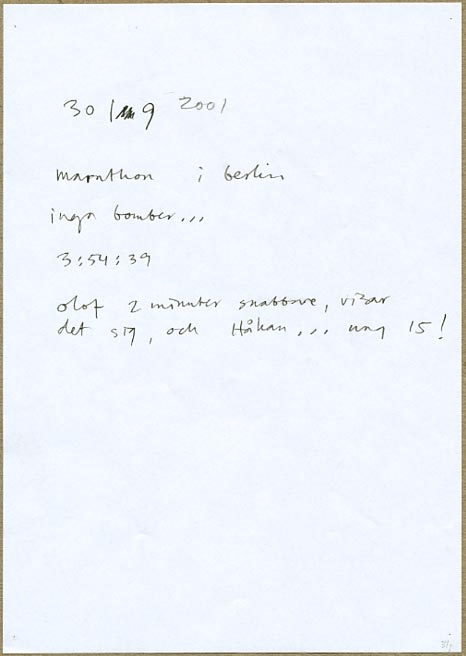 30 / 9 2001
marathon i berlin
inga bomber...
3:54:39
olof 2 minuter snabbare, visar
det sig, och Håkan... ung 15!